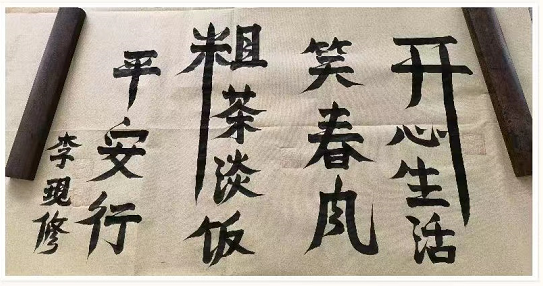 开心生活
笑春风
粗茶淡饭
平安行
李現修